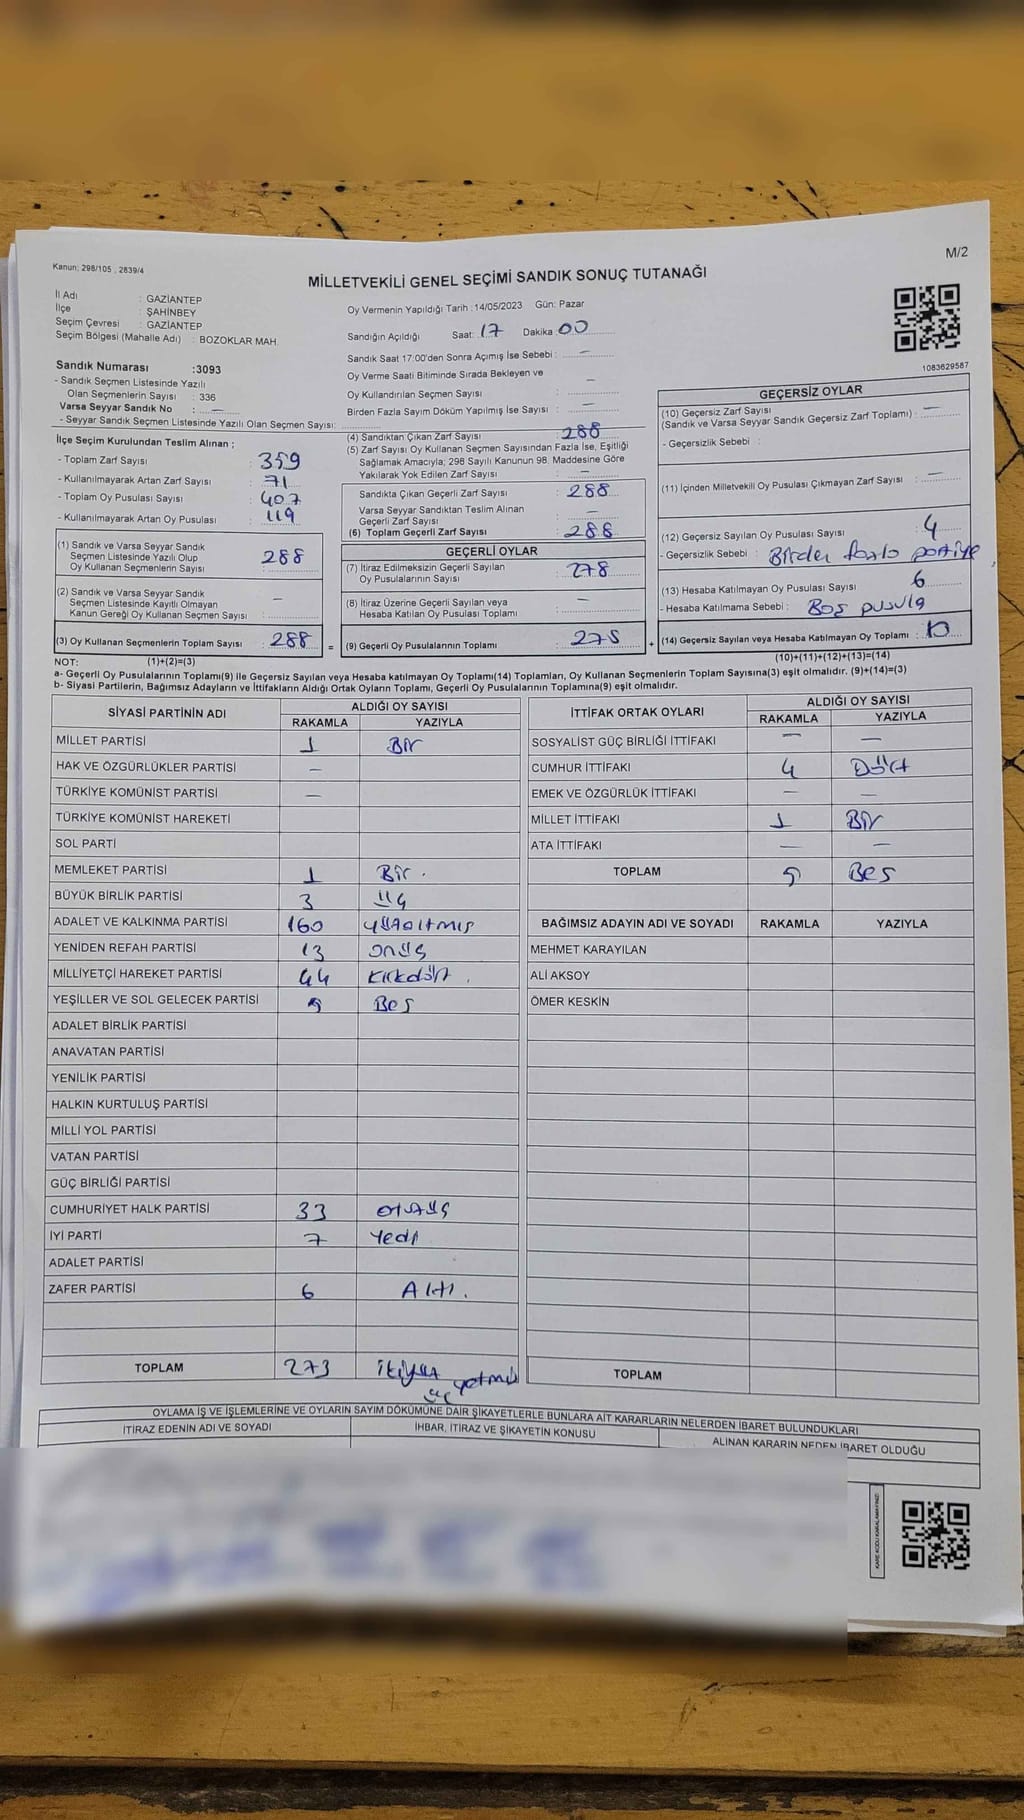 M/2
Kanun: 298/105 , 2839/4
MİLLETVEKİLİ GENEL SEÇİMİ SANDIK SONUÇ TUTANAĞI
İl Adı : GAZİANTEP
İlçe : ŞAHİNBEY
Seçim Çevresi : GAZİANTEP
Seçim Bölgesi (Mahalle Adı) : BOZOKLAR MAH.
Sandık Numarası :3093
- Sandık Seçmen Listesinde Yazılı
Olan Seçmenlerin Sayısı : 336
Varsa Seyyar Sandık No : —
- Seyyar Sandık Seçmen Listesinde Yazılı Olan Seçmen Sayısı:
Oy Vermenin Yapıldığı Tarih :14/05/2023 Gün: Pazar
Sandığın Açıldığı Saat: 17 Dakika: 00
Sandık Saat 17:00'den Sonra Açımış İse Sebebi : —
Oy Verme Saati Bitiminde Sırada Bekleyen ve
Oy Kullandırılan Seçmen Sayısı : —
Birden Fazla Sayım Döküm Yapılmış İse Sayısı : —
1083629587
İlçe Seçim Kurulundan Teslim Alınan ;
- Toplam Zarf Sayısı : 359
- Kullanılmayarak Artan Zarf Sayısı : 71
- Toplam Oy Pusulası Sayısı : 407
- Kullanılmayarak Artan Oy Pusulası : 119
(1) Sandık ve Varsa Seyyar Sandık
Seçmen Listesinde Yazılı Olup
Oy Kullanan Seçmenlerin Sayısı : 288
(2) Sandık ve Varsa Seyyar Sandık
Seçmen Listesinde Kayıtlı Olmayan
Kanun Gereği Oy Kullanan Seçmen Sayısı : —
(3) Oy Kullanan Seçmenlerin Toplam Sayısı : 288 =
(4) Sandıktan Çıkan Zarf Sayısı : 288
(5) Zarf Sayısı Oy Kullanan Seçmen Sayısından Fazla İse, Eşitliği
Sağlamak Amacıyla; 298 Sayılı Kanunun 98. Maddesine Göre
Yakılarak Yok Edilen Zarf Sayısı : —
Sandıkta Çıkan Geçerli Zarf Sayısı : 288
Varsa Seyyar Sandıktan Teslim Alınan
Geçerli Zarf Sayısı : —
(6) Toplam Geçerli Zarf Sayısı : 288
GEÇERLİ OYLAR
(7) İtiraz Edilmeksizin Geçerli Sayılan
Oy Pusulalarının Sayısı : 278
(8) İtiraz Üzerine Geçerli Sayılan veya
Hesaba Katılan Oy Pusulası Toplamı : —
(9) Geçerli Oy Pusulalarının Toplamı : +
GEÇERSİZ OYLAR
(10) Geçersiz Zarf Sayısı
(Sandık ve Varsa Seyyar Sandık Geçersiz Zarf Toplamı) : —
- Geçersizlik Sebebi :
(11) İçinden Milletvekili Oy Pusulası Çıkmayan Zarf Sayısı : —
(12) Geçersiz Sayılan Oy Pusulası Sayısı : 4
- Geçersizlik Sebebi : Birden fazla partiye
(13) Hesaba Katılmayan Oy Pusulası Sayısı 6
- Hesaba Katılmama Sebebi : Boş pusula
(14) Geçersiz Sayılan veya Hesaba Katılmayan Oy Toplamı : 10
NOT: (1)+(2)=(3) (10)+(11)+(12)+(13)=(14)
a- Geçerli Oy Pusulalarının Toplamı(9) ile Geçersiz Sayılan veya Hesaba katılmayan Oy Toplamı(14) Toplamları, Oy Kullanan Seçmenlerin Toplam Sayısına(3) eşit olmalıdır. (9)+(14)=(3)
b- Siyasi Partilerin, Bağımsız Adayların ve İttifakların Aldığı Ortak Oyların Toplamı, Geçerli Oy Pusulalarının Toplamına(9) eşit olmalıdır.
SİYASİ PARTİNİN ADI ALDIĞI OY SAYISI
RAKAMLA YAZIYLA
MİLLET PARTİSİ 1 Bir
HAK VE ÖZGÜRLÜKLER PARTİSİ —
TÜRKİYE KOMÜNİST PARTİSİ —
TÜRKİYE KOMÜNİST HAREKETİ
SOL PARTİ
MEMLEKET PARTİSİ 1 Bir.
BÜYÜK BİRLİK PARTİSİ 3 üç
ADALET VE KALKINMA PARTİSİ 160 yüzaltmış
YENİDEN REFAH PARTİSİ 13 onüç
MİLLİYETÇİ HAREKET PARTİSİ 44 Kırkdört.
YEŞİLLER VE SOL GELECEK PARTİSİ 5 Beş
ADALET BİRLİK PARTİSİ
ANAVATAN PARTİSİ
YENİLİK PARTİSİ
HALKIN KURTULUŞ PARTİSİ
MİLLİ YOL PARTİSİ
VATAN PARTİSİ
GÜÇ BİRLİĞİ PARTİSİ
CUMHURİYET HALK PARTİSİ 33 otuzüç
İYİ PARTİ 7 Yedi
ADALET PARTİSİ
ZAFER PARTİSİ 6 Altı.
TOPLAM 273 ikiyüz yetmiş üç
İTTİFAK ORTAK OYLARI ALDIĞI OY SAYISI
RAKAMLA YAZIYLA
SOSYALİST GÜÇ BİRLİĞİ İTTİFAKI — —
CUMHUR İTTİFAKI 4 Dört
EMEK VE ÖZGÜRLÜK İTTİFAKI — —
MİLLET İTTİFAKI 1 Bir
ATA İTTİFAKI — —
TOPLAM 5 Beş
BAĞIMSIZ ADAYIN ADI VE SOYADI RAKAMLA YAZIYLA
MEHMET KARAYILAN
ALİ AKSOY
ÖMER KESKİN
TOPLAM
OYLAMA İŞ VE İŞLEMLERİNE VE OYLARIN SAYIM DÖKÜMÜNE DAİR ŞİKAYETLERLE BUNLARA AİT KARARLARIN NELERDEN İBARET BULUNDUKLARI
İTİRAZ EDENİN ADI VE SOYADI İHBAR, İTİRAZ VE ŞİKAYETİN KONUSU ALINAN KARARIN NEDEN İBARET OLDUĞU